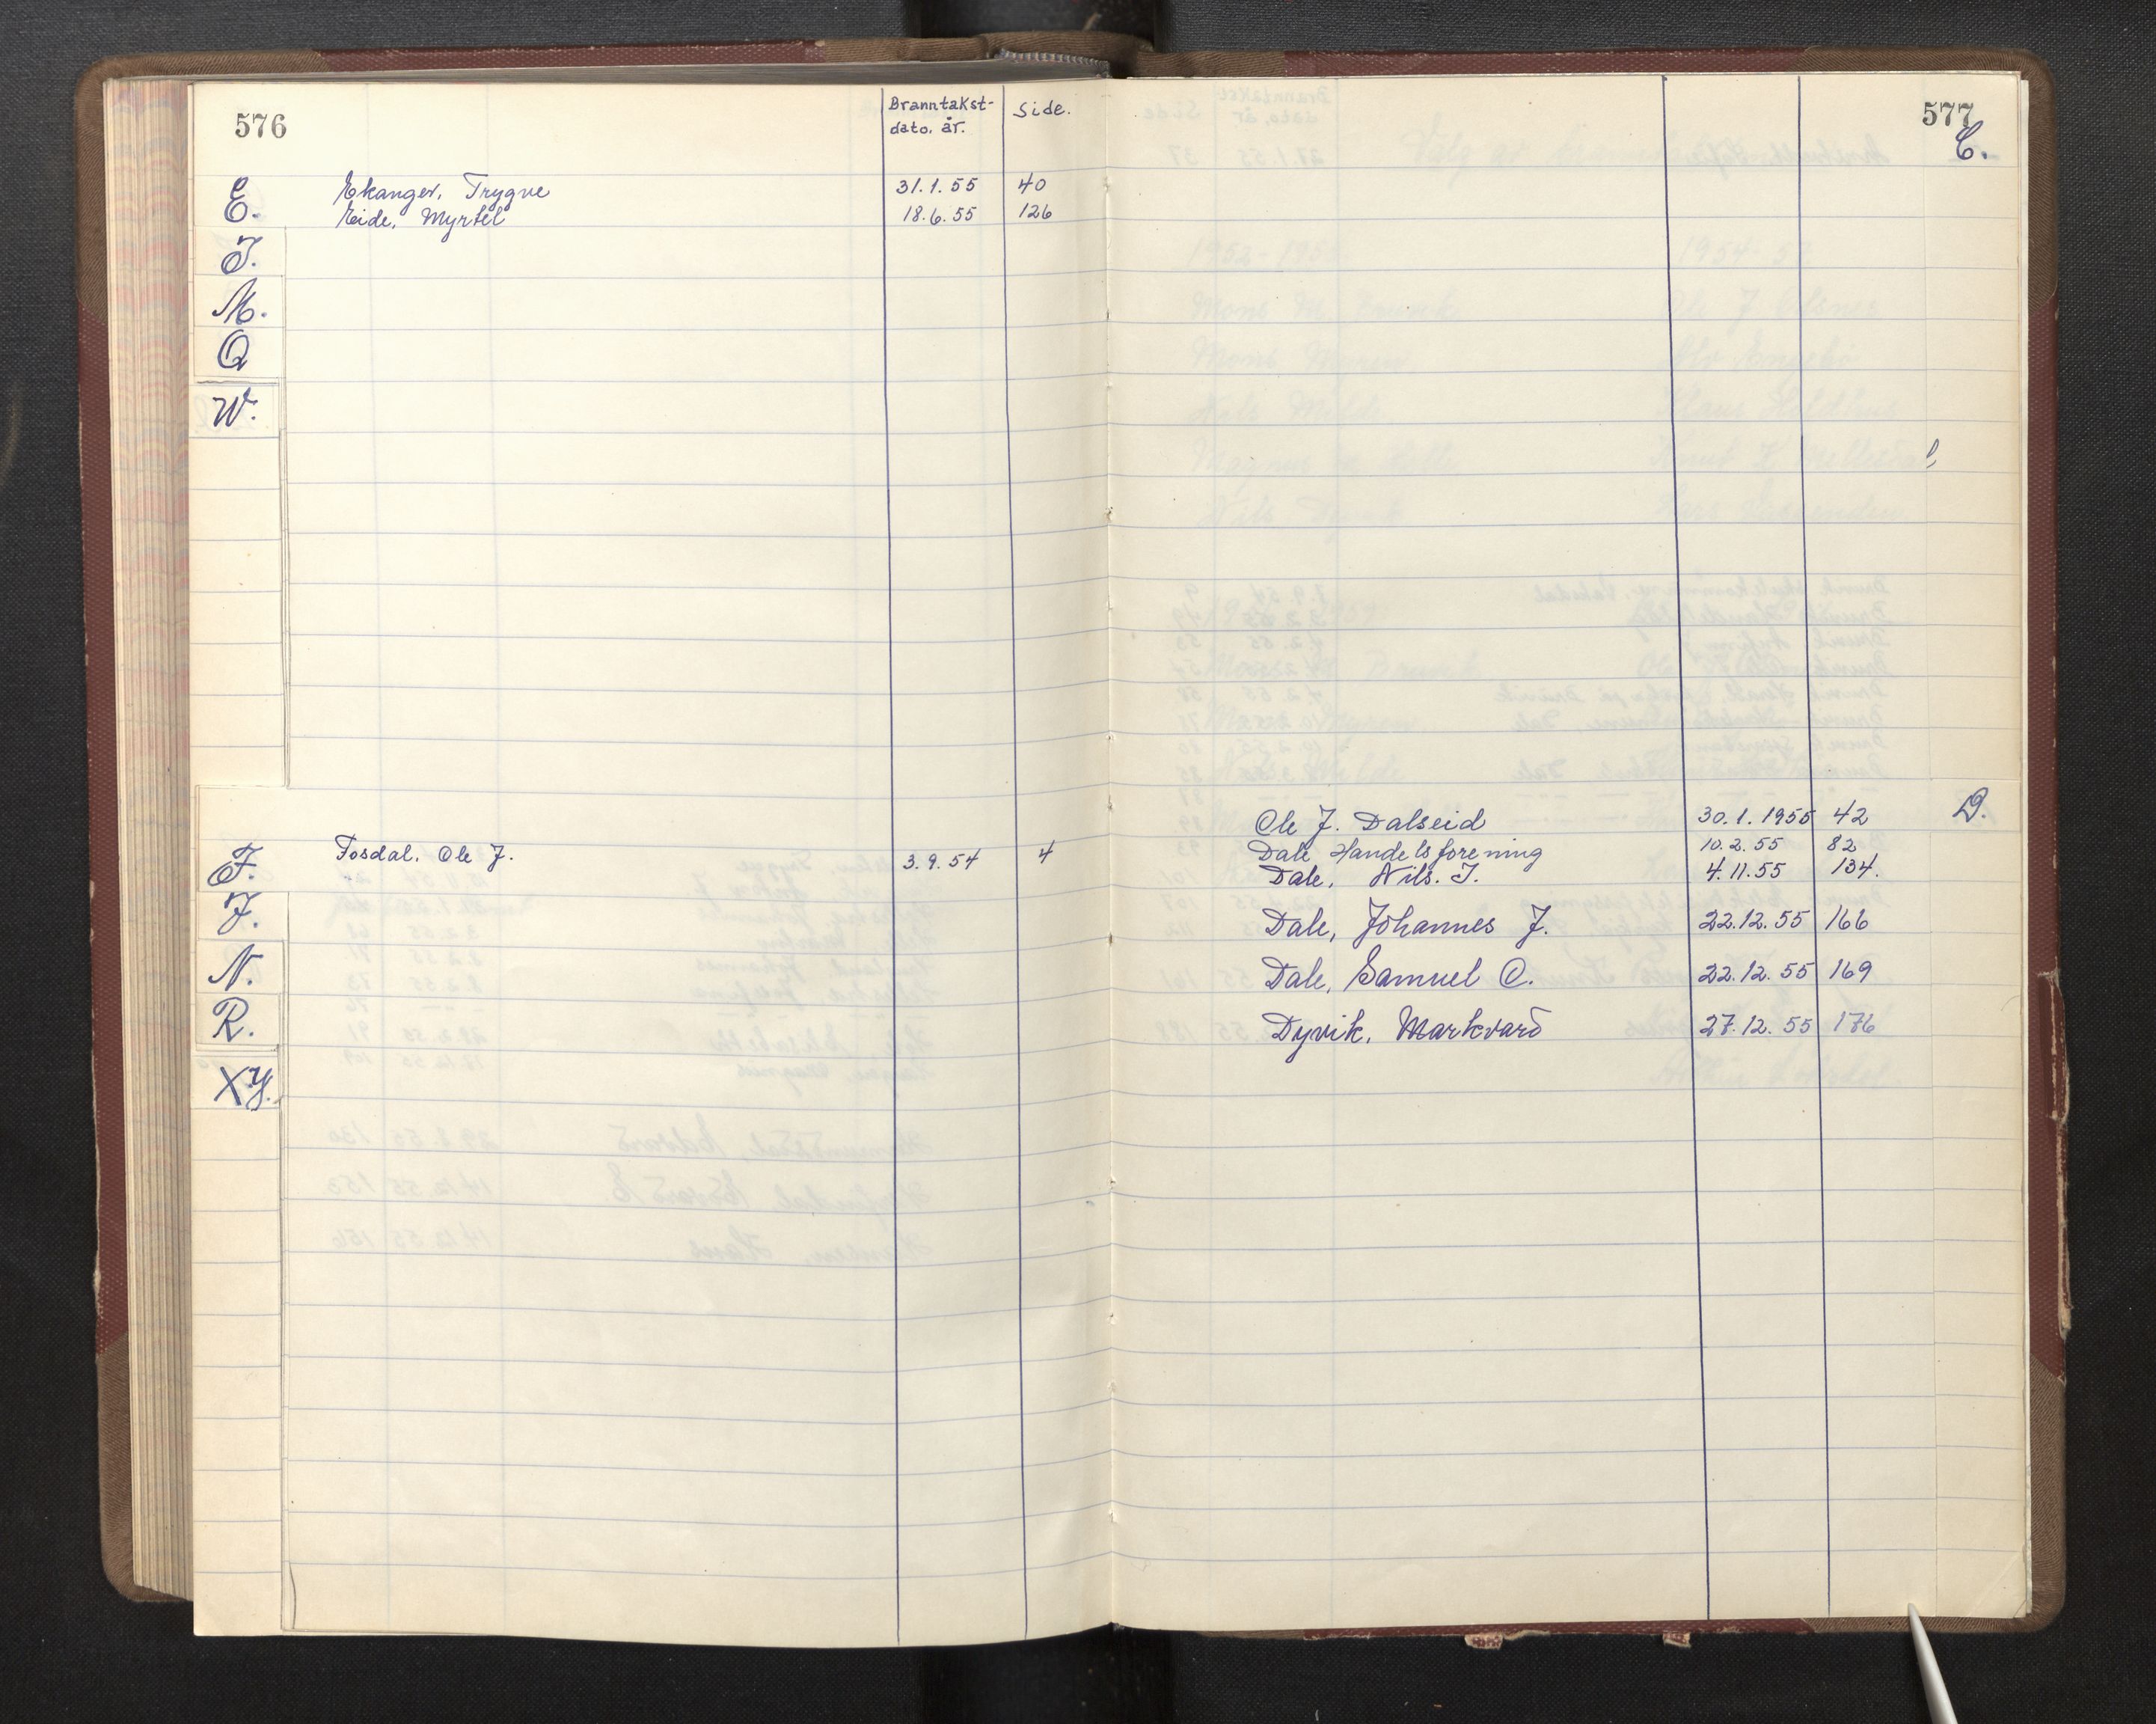 576
Branntakst-
dato. år.
Side.
E. Ekanger, Trygve 31.1.55 40
Eide, Myrtel 18.6.55 126
I.
M.
Q
W.
F. Fosdal, Ole J. 3.9.54 4
J.
N.
R.
XY.
577
C.
Ole J. Dalseid 30.1.1955 42 D.
Dale Handelsforening 10.2.55 82
Dale, Nils. J. 4.11.55 134.
Dale, Johannes J. 22.12.55 166
Dale, Samuel O. 22.12.55 169
Dyvik, Markvard 27.12.55 176